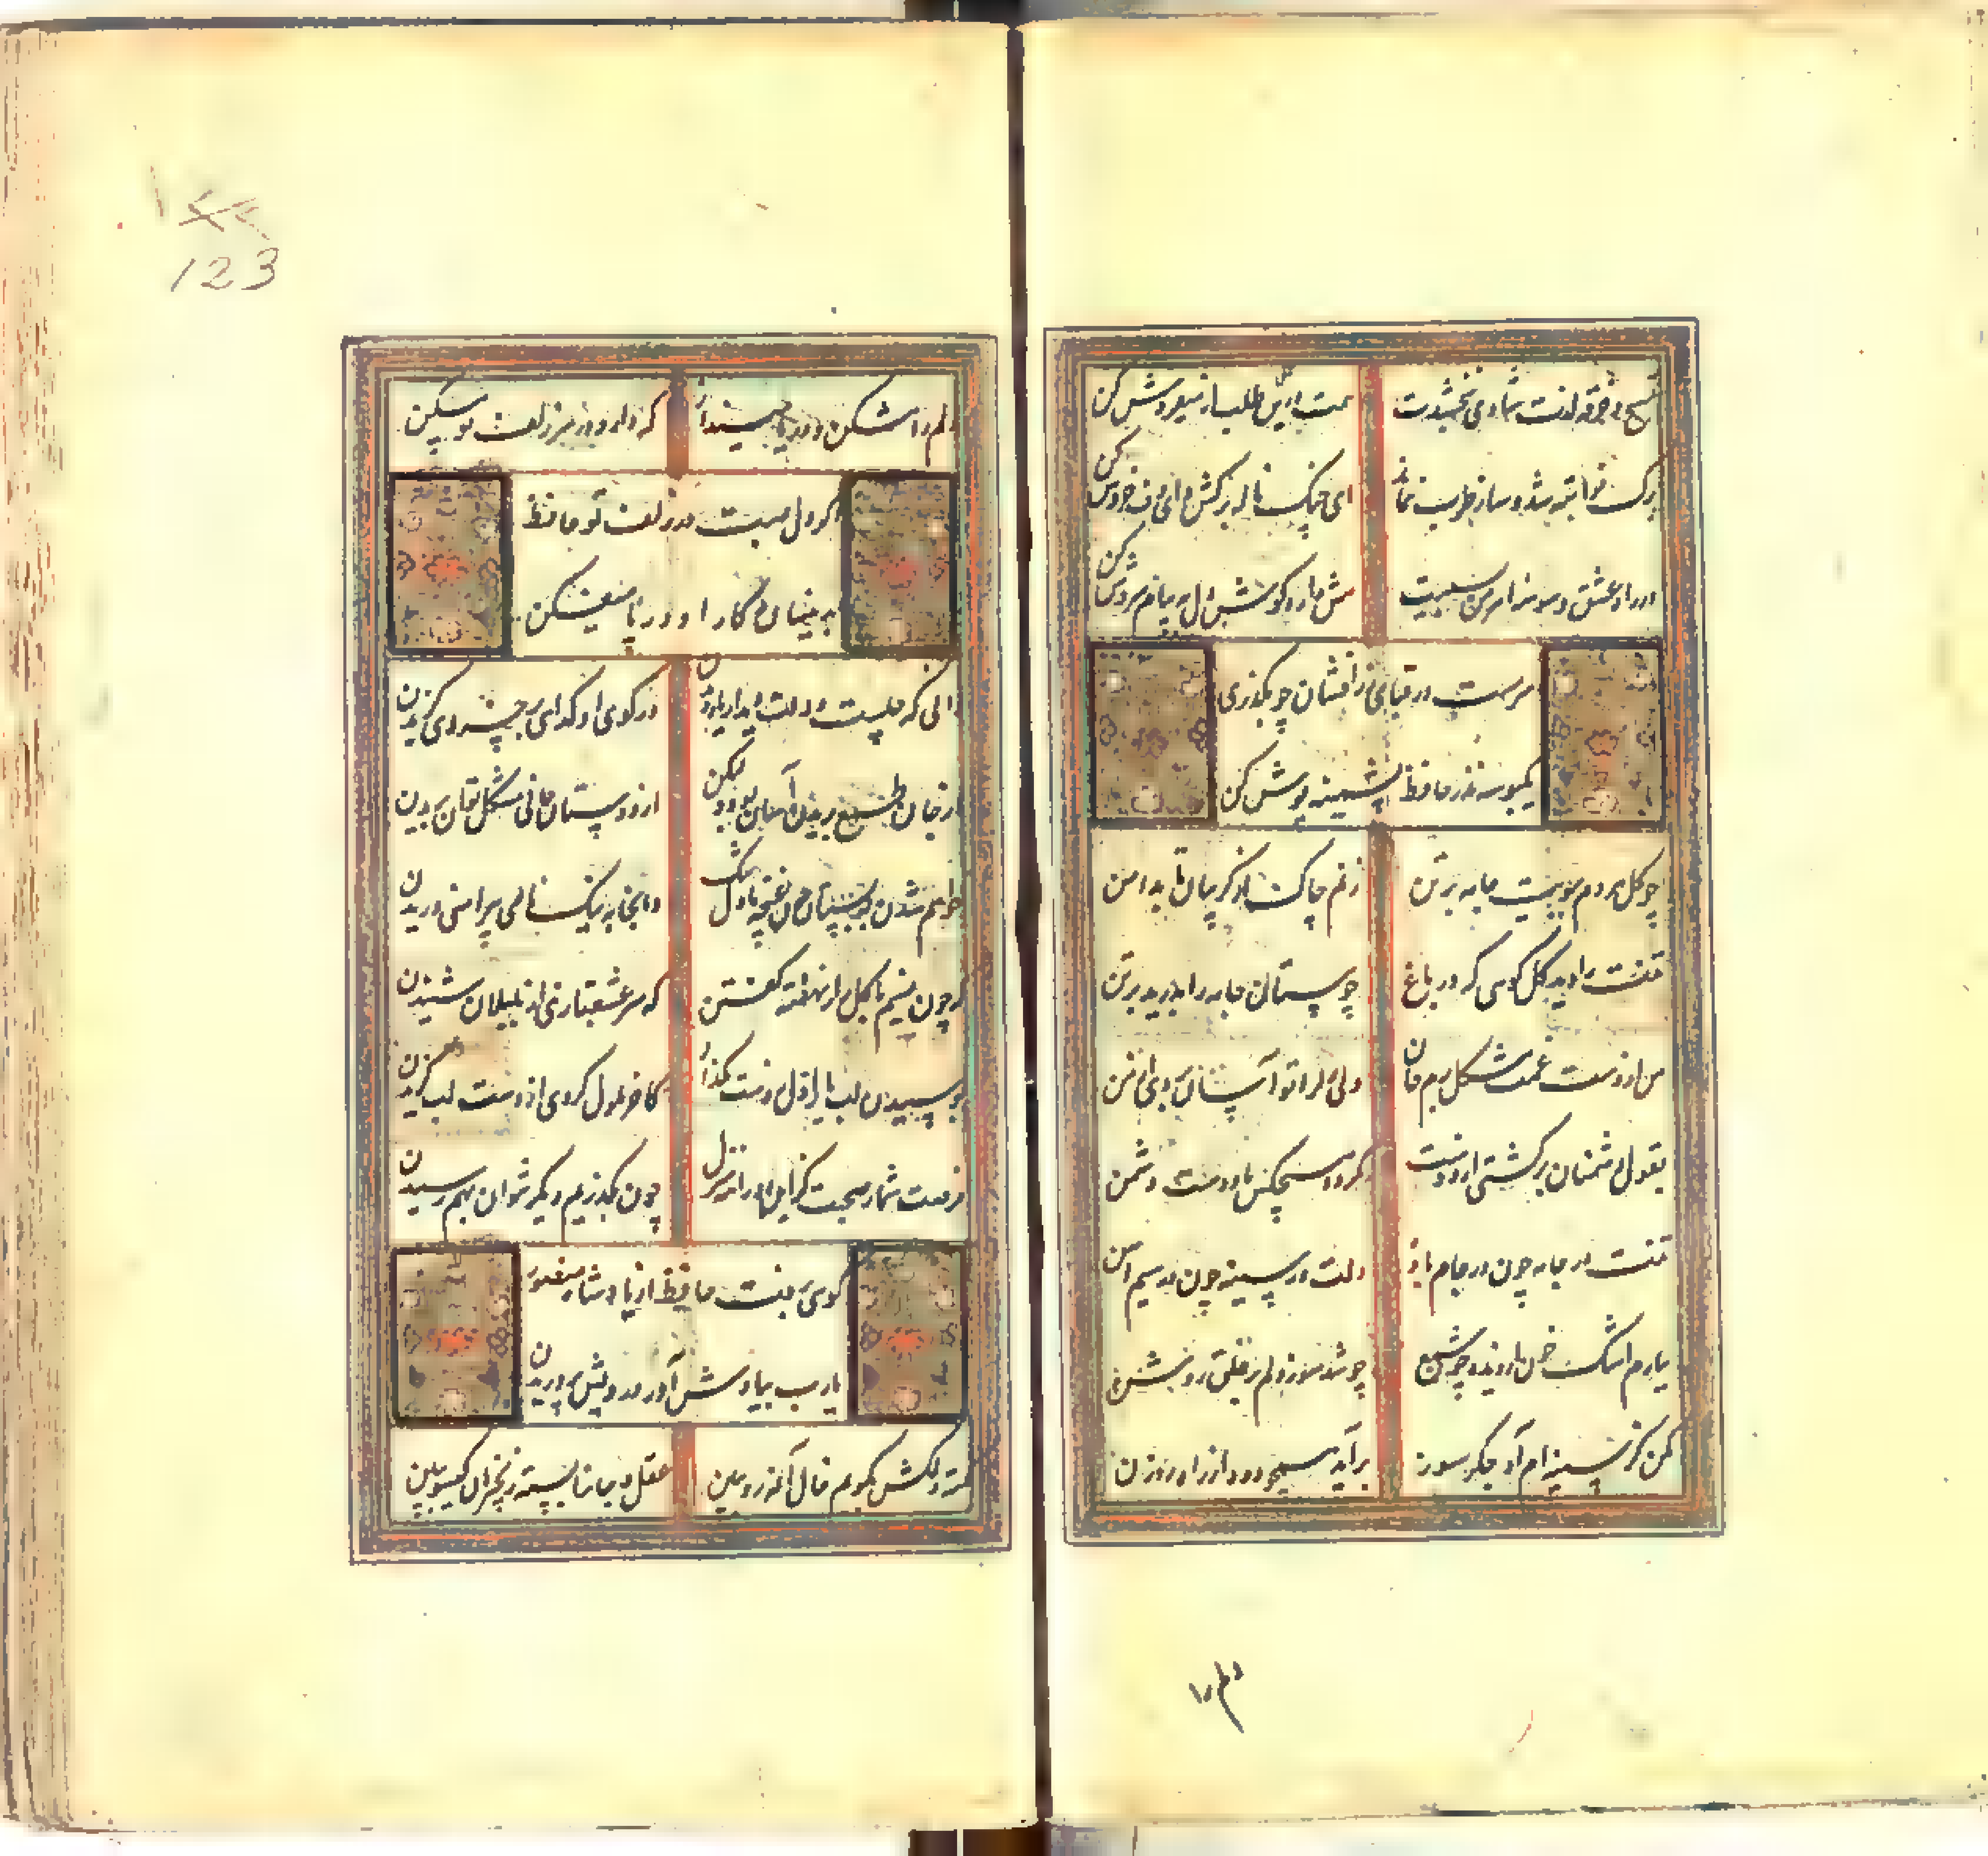 تسبیح و خرقه لذت مستی نبخشدت
همت درین عمل طلب از میفروش کن
برگ نوا تبه شد و ساز طرب نماند
ای چنگ ناله برکش و ای دف خروش کن
در راه عشق وسوسه اهرمن بسیست
هش دار و گوش دل به پیام سروش کن
سرمست در قبای زرافشان چو بگذری
یک بوسه نذر حافظ پشمینه پوش کن
چو گل هر دم ببویت جامه بر تن
زنم چاک از گریبان تا بدامن
تنت را دید گل گویی که در باغ
چو مستان جامه را بدرید بر تن
من از دست غمت مشکل برم جان
ولی دل را تو آسان بردی از من
بقول دشمنان برگشتی از دوست
نگردد هیچکس با دوست دشمن
تنت در جامه چون در جام باده
دلت در سینه چون در سیم آهن
ببار ای شمع اشک از دیده چون
چو شد سوز دلم بر خلق روشن
مکن کز سینه ام آه جگر سوز
برآید همچو دود از راه روزن
دلم را مشکن و در پا میندازش
که دارد در سر زلف تو مسکن
چو دل بست در زلف تو حافظ
بدینسان کار او در پا میفکن
دانی که چیست دولت دیدار یار دیدن
در کوی او گدایی بر خسروی گزیدن
از جان طمع بریدن آسان بود ولیکن
از دوستان جانی مشکل توان بریدن
خواهم شدن ببستان چون غنچه با دل تنگ
وانجا به نیک نامی پیراهنی دریدن
گه چون نسیم با گل راز نهفته گفتن
گه سر عشقبازی از بلبلان شنیدن
بوسیدن لب یار اول ز دست مگذار
کاخر ملول گردی از دست و لب گزیدن
فرصت شمار صحبت کز این دو راهه منزل
چون بگذریم دیگر نتوان بهم رسیدن
گویی برفت حافظ از یاد شاه منصور
یارب بیادش آور درویش پروریدن
نکته دلکش بگویم خال آن مه رو ببین
عقل و جان را بسته زنجیر آن گیسو ببین
123